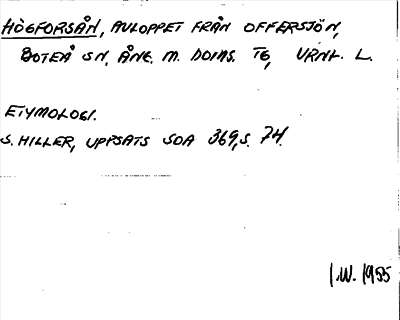 HÖGFORSÅN, AVLOPPET FRÅN OFFERSJÖN,
BOTEÅ SN, ÅNG. M. DOMS. TG, VRNL. L.
ETYMOLOGI.
S. HILLER, UPPSATS SOA 369, S. 74.
I.W. 1955